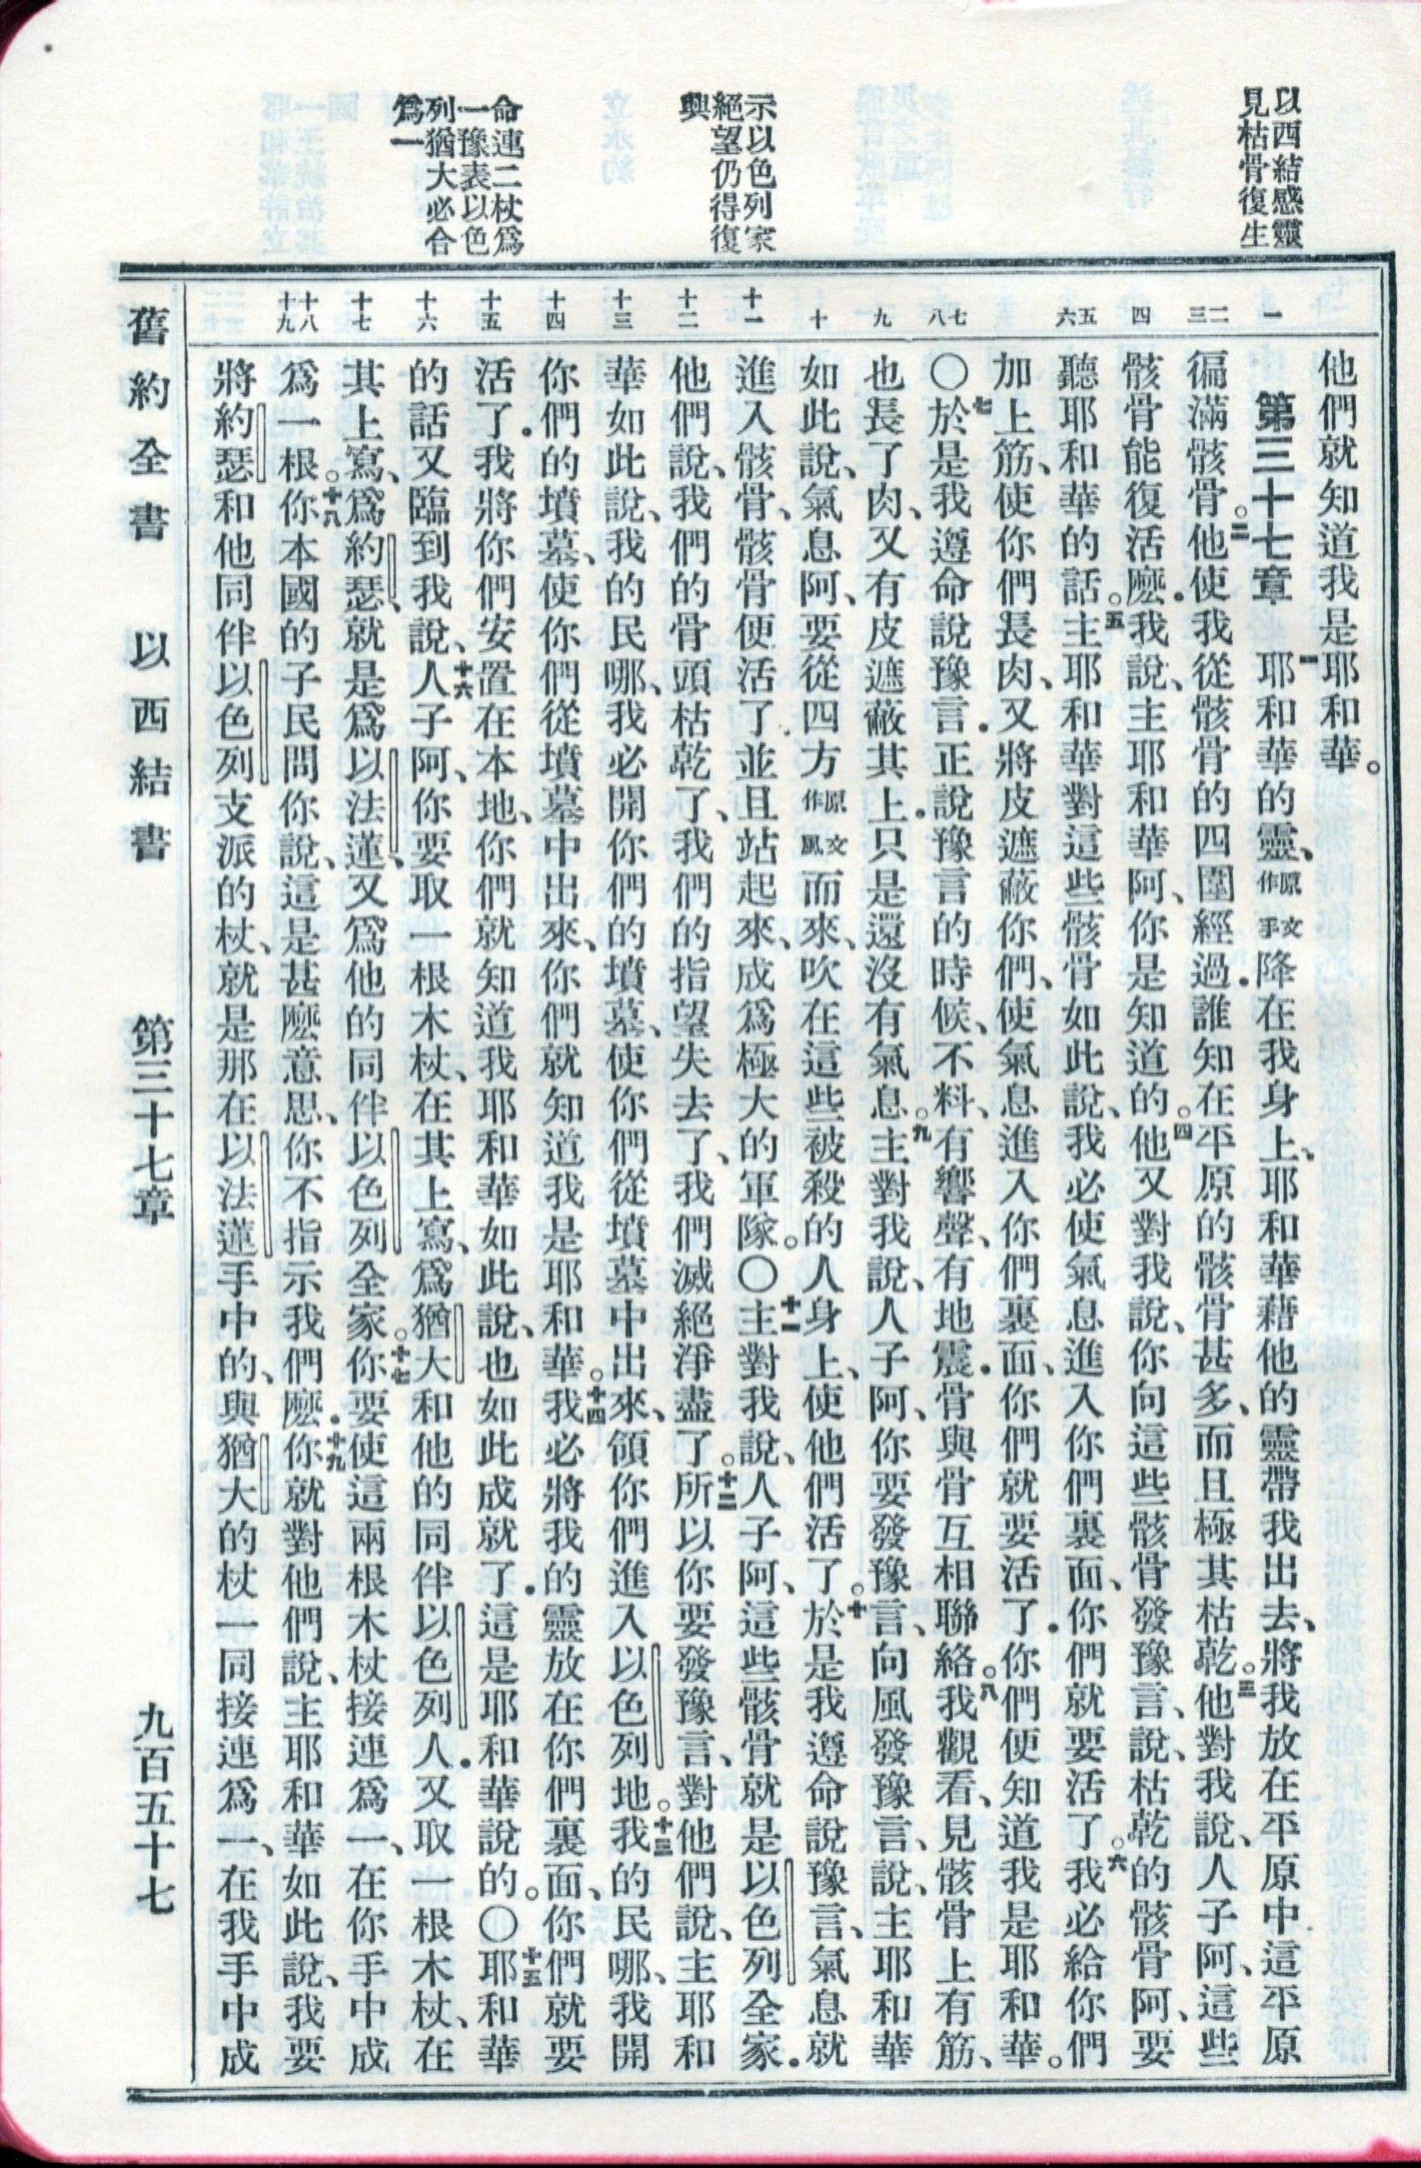 以西結感靈
見枯骨復生
示以色列家
絕望仍得復
興
命連二杖爲
一豫表以色
列猶大必合
爲一
他們就知道我是耶和華。
一
第三十七章 一耶和華的靈、原文作手降在我身上、耶和華藉他的靈帶我出去、將我放在平原中這平原
二 三
徧滿骸骨。二他使我從骸骨的四圍經過.誰知在平原的骸骨甚多、而且極其枯乾。三他對我說、人子阿、這些
四
骸骨能復活麼.我說、主耶和華阿、你是知道的。四他又對我說、你向這些骸骨發豫言、說、枯乾的骸骨阿、要
五 六
聽耶和華的話。五主耶和華對這些骸骨如此說、我必使氣息進入你們裏面、你們就要活了。六我必給你們
加上筋、使你們長肉、又將皮遮蔽你們、使氣息進入你們裏面、你們就要活了.你們便知道我是耶和華。
七 八
〇七於是我遵命說豫言.正說豫言的時候、不料、有響聲、有地震.骨與骨互相聯絡。八我觀看、見骸骨上有筋、
九
也長了肉、又有皮遮蔽其上.只是還沒有氣息。九主對我說、人子阿、你要發豫言、向風發豫言、說、主耶和華
十
如此說、氣息阿、要從四方原文作風而來、吹在這些被殺的人身上、使他們活了。十於是我遵命說豫言、氣息就
十一
進入骸骨、骸骨便活了.並且站起來、成爲極大的軍隊。〇十一主對我說、人子阿、這些骸骨就是以色列全家.
十二
他們說、我們的骨頭枯乾了、我們的指望失去了、我們滅絕淨盡了。十二所以你要發豫言、對他們說、主耶和
十三
華如此說、我的民哪、我必開你們的墳墓、使你們從墳墓中出來、領你們進入以色列地。十三我的民哪、我開
十四
你們的墳墓、使你們從墳墓中出來、你們就知道我是耶和華。十四我必將我的靈放在你們裏面、你們就要
十五
活了.我將你們安置在本地、你們就知道我耶和華如此說、也如此成就了.這是耶和華說的。〇十五耶和華
十六
的話又臨到我說、十六人子阿、你要取一根木杖、在其上寫、爲猶大和他的同伴以色列人.又取一根木杖、在
十七
其上寫、爲約瑟、就是爲以法蓮、又爲他的同伴以色列全家。十七你要使這兩根木杖接連爲一、在你手中成
十八 十九
爲一根。十八你本國的子民問你說、這是甚麼意思、你不指示我們麼.十九你就對他們說、主耶和華如此說、我要
將約瑟和他同伴以色列支派的杖、就是那在以法蓮手中的、與猶大的杖一同接連爲一、在我手中成
舊約全書 以西結書 第三十七章 九百五十七